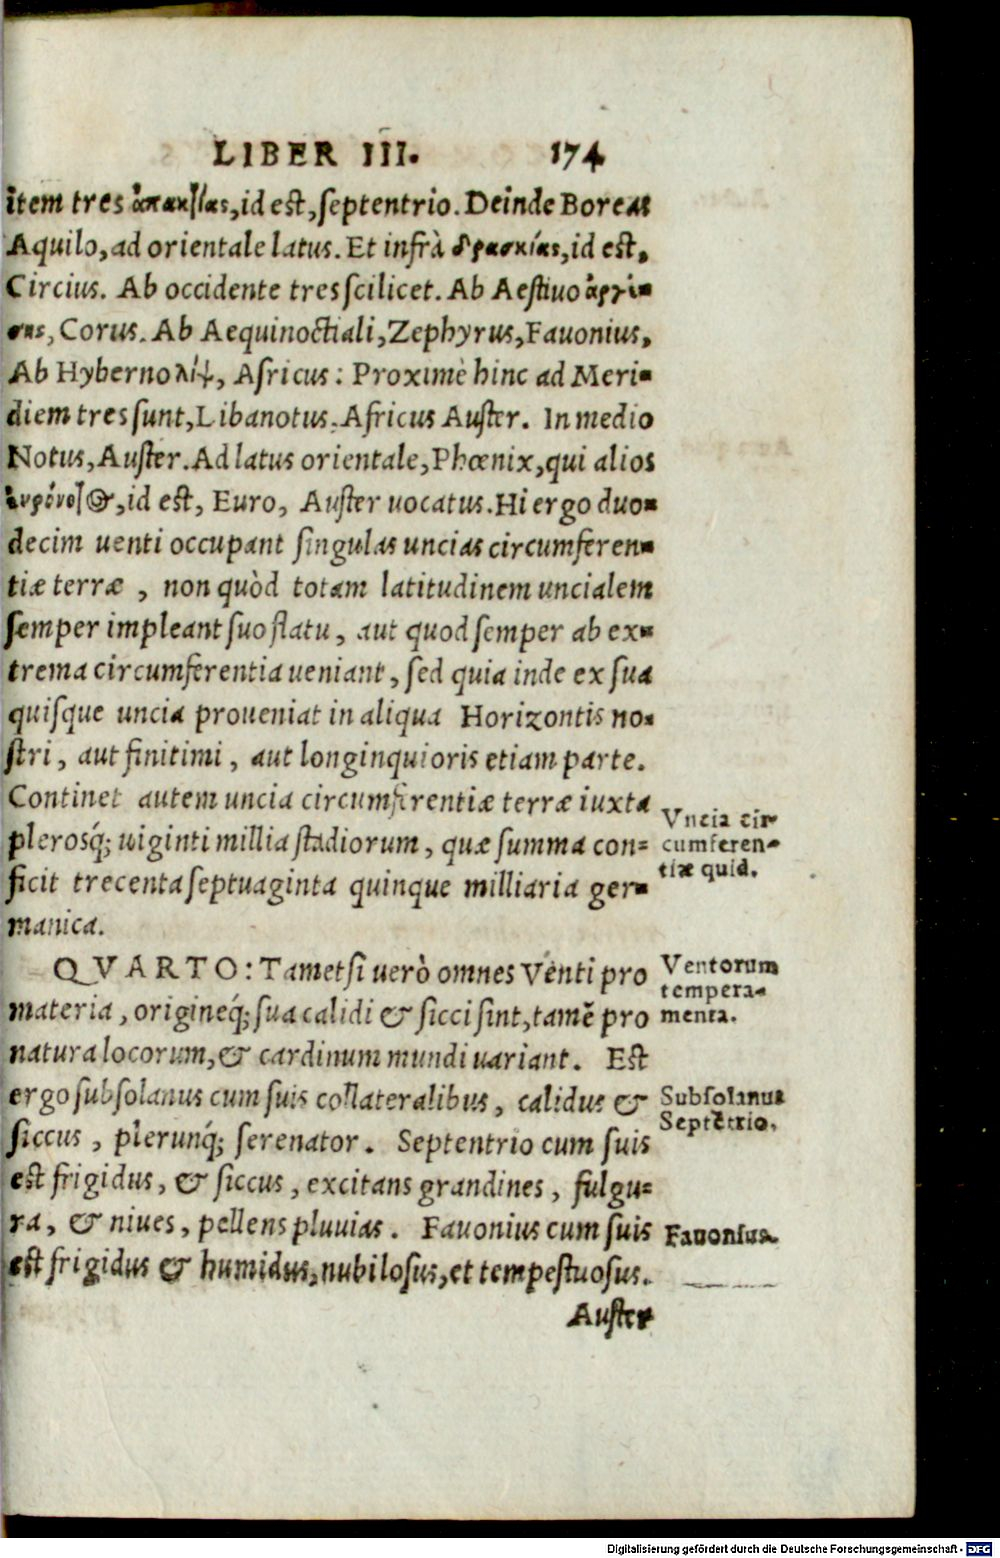 LIBER III. 174
item tres ἀπαρκτίας, id est, septentrio. Deinde Boreas
Aquilo, ad orientale latus. Et infrà θρασκίας, id est,
Circius. Ab occidente tres scilicet. Ab Aestiuo ἀργέ-
σης, Corus. Ab Aequinoctiali, Zephyrus, Fauonius,
Ab Hyberno λίψ, Africus: Proximè hinc ad Meri-
diem tres sunt, Libanotus. Africus Auster. In medio
Notus, Auster. Ad latus orientale, Phœnix, qui alios
id est, Euro, Auster uocatus. Hi ergo duo-
decim uenti occupant singulas uncias circumferen-
tiæ terræ, non quòd totam latitudinem uncialem
semper impleant suo flatu, aut quod semper ab ex-
trema circumferentia ueniant, sed quia inde ex sua
quisque uncia proueniat in aliqua Horizontis no-
stri, aut finitimi, aut longinquioris etiam parte.
Continet autem uncia circumferentiæ terræ iuxta
plerosq́; uiginti millia stadiorum, quæ summa con-
ficit trecenta septuaginta quinque milliaria ger-
manica.
Vncia cir
cumferen-
tiæ quid.
QVARTO: Tametsi uerò omnes Venti pro
materia, origineq́; sua calidi & sicci sint, tamē pro
natura locorum, & cardinum mundi uariant. Est
ergo subsolanus cum suis collateralibus, calidus &
siccus, plerunq́; serenator. Septentrio cum suis
est frigidus, & siccus, excitans grandines, fulgu-
ra, & niues, pellens pluuias. Fauonius cum suis
est frigidus & humidus, nubilosus, et tempestuosus.
Ventorum
tempera-
menta.
Subsolanus
Septētrio.
Fauonius.
Auster
Digitalisierung gefördert durch die Deutsche Forschungsgemeinschaft - DFG